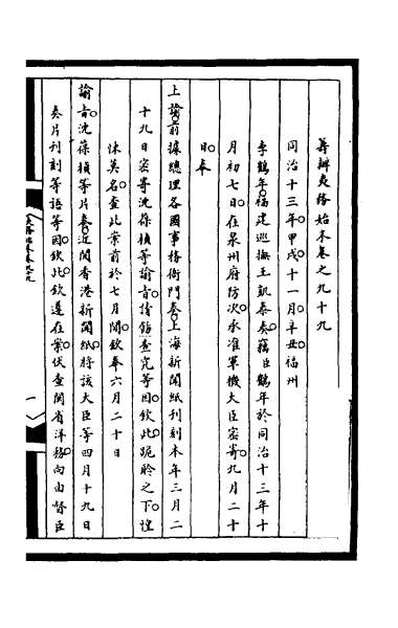 籌辦夷務始末卷之九十九
同治十三年甲戌十一月辛丑福州
李鶴年福建巡撫王凱泰奏竊臣鶴年於同治十三年十
月初七日在泉州府防次承准軍機大臣密寄九月二十
日奉
上諭前據總理各國事務衙門奏上海新聞紙刊刻本年三月二
十九日密寄沈葆楨等諭旨請飭查究等因欽此跪聆之下惶
悚莫名查此案前於七月間欽奉六月二十日
諭旨沈葆楨等片奏近閱香港新聞紙將該大臣等四月十九日
奏片刊刻等語等因欽此欽遵在案伏查閩省洋務向由督臣